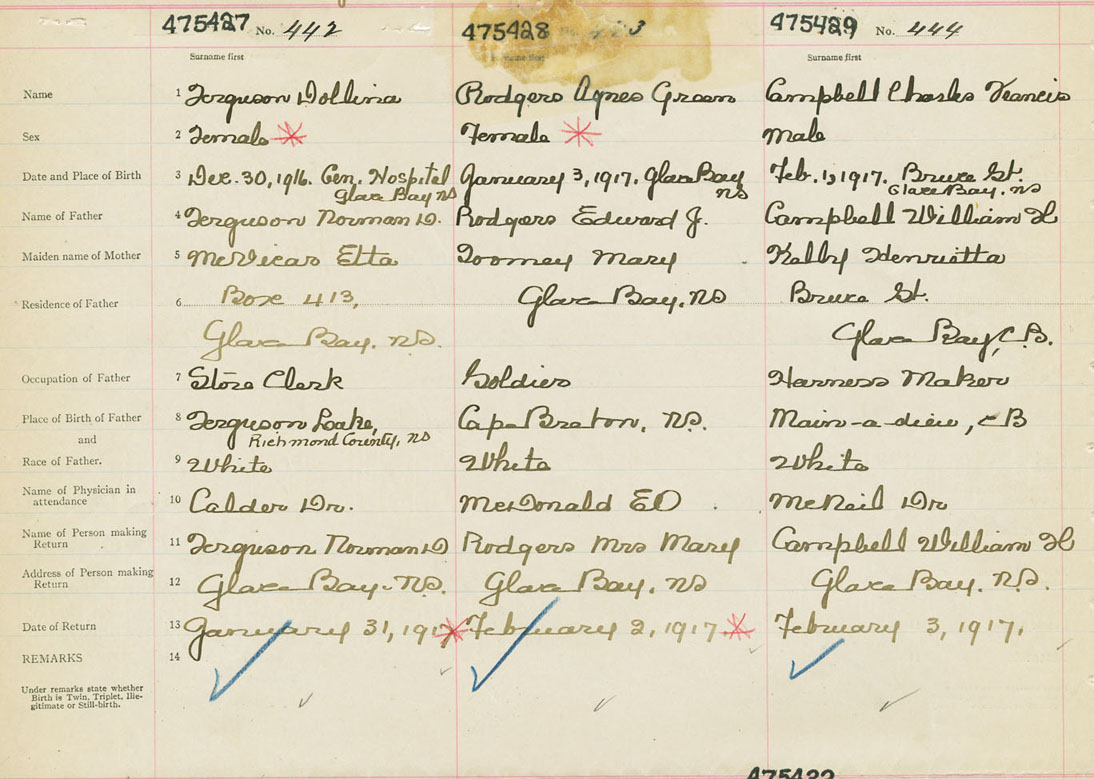 475427 No. 442
475428 No. 3
475429 No. 444
Surname first
name first
Surname first
Name 1 Ferguson Dollina
Rodgers Agnes Green
Campbell Charles Francis
Sex 2 Female
Female
Male
Date and Place of Birth 3 Dec. 30, 1916. Gen. Hospital
Glace Bay NS
January 3, 1917. Glace Bay
NS
Feb. 1, 1917. Bruce St.
Glace Bay. NS
Name of Father 4 Ferguson Norman D.
Rodgers Edward J.
Campbell William H
Maiden name of Mother 5 McVicar Etta
Toomey Mary
Kelly Henrietta
Residence of Father 6 Box 413,
Glace Bay. N.S.
Glace Bay. NS
Bruce St.
Glace Bay, C.B.
Occupation of Father 7 Store Clerk
Soldier
Harness Maker
Place of Birth of Father 8 Ferguson Lake,
Richmond County, NS
Cape Breton, NS.
Main-a-dieu, CB
and
Race of Father. 9 White
White
White
Name of Physician in
attendance 10 Calder Dr.
McDonald ED
McNeil Dr
Name of Person making
Return 11 Ferguson Norman D
Rodgers Mrs Mary
Campbell William H
Address of Person making
Return 12 Glace Bay. N.S.
Glace Bay, NS
Glace Bay. N.S.
Date of Return 13 January 31, 1917
February 2, 1917.
February 3, 1917.
REMARKS 14
Under remarks state whether
Birth is Twin, Triplet, Ille-
gitimate or Still-birth.